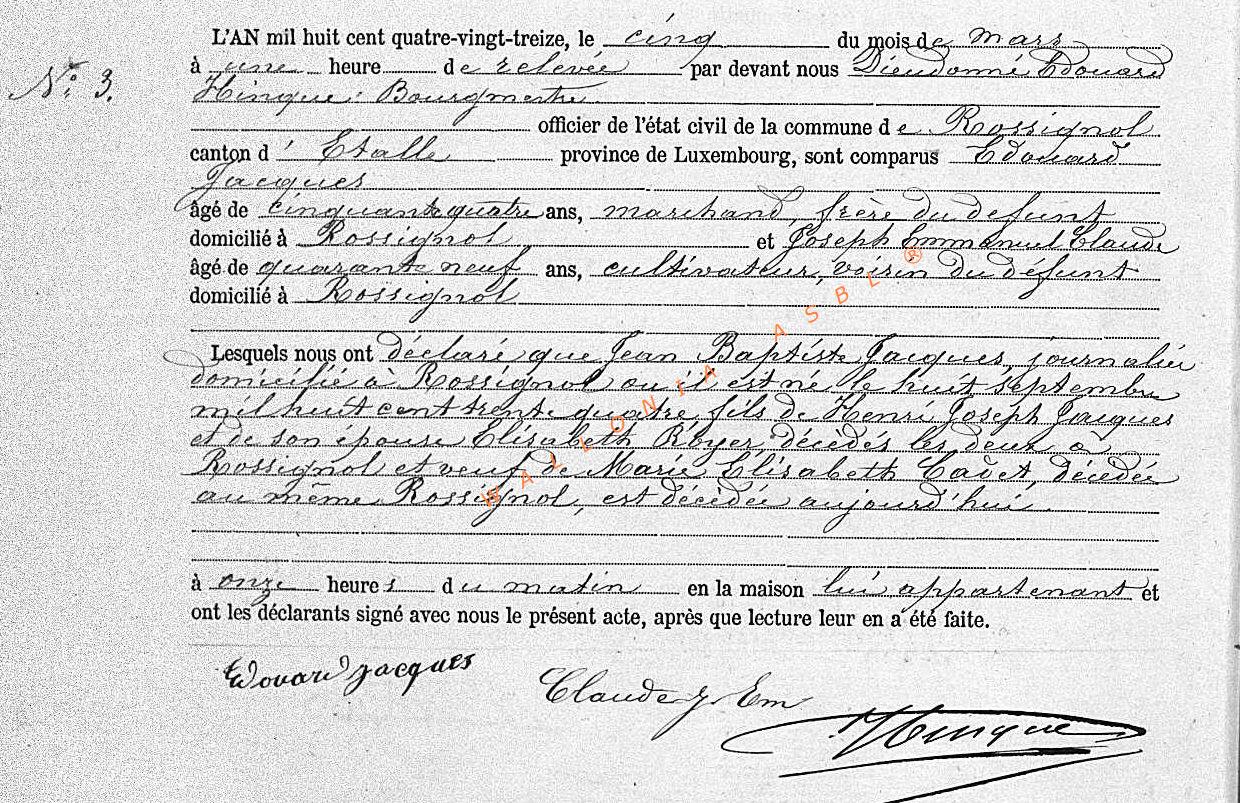 L'AN mil huit cent quatre-vingt-treize, le cinq du mois de mars
N° 3. à une heure de relevée par devant nous Dieudonné Edouard
Hinque : Bourgmestre
officier de l'état civil de la commune de Rossignol
canton d' Etalle province de Luxembourg, sont comparus Edouard
Jacques
âgé de cinquante quatre ans, marchand, frère du defunt
domicilié à Rossignol et Joseph Emmanuel Claude
âgé de quarante neuf ans, cultivateur, voisin du défunt
domicilié à Rossignol
Lesquels nous ont déclaré que Jean Baptiste Jacques, journalier
domicilié à Rossignol ou il est né le huit septembre
mil huit cent trente quatre, fils de Henri Joseph Jacques
et de son épouse Elisabeth Royer, décédés les deux à
Rossignol et veuf de Marie Elisabeth Cadet, décédée
au même Rossignol, est décédée aujourd'hui
à onze heures du matin en la maison lui appartenant et
ont les déclarants signé avec nous le présent acte, après que lecture leur en a été faite.
Edouard Jacques
Claude J. Em
Hinque
WALLONIA ASBL ®